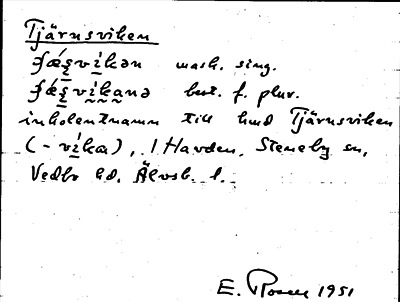 Tjärnsviken
ʄǽs̱vi̱kən mask. sing.
ʄǽs̱vi̱kanə best. f. plur.
inkolentnamn till hmd Tjärnsviken
(-vi̱ka), i Havden, Steneby sn,
Vedbo hd, Älvsb. l.
E. Rosell 1951